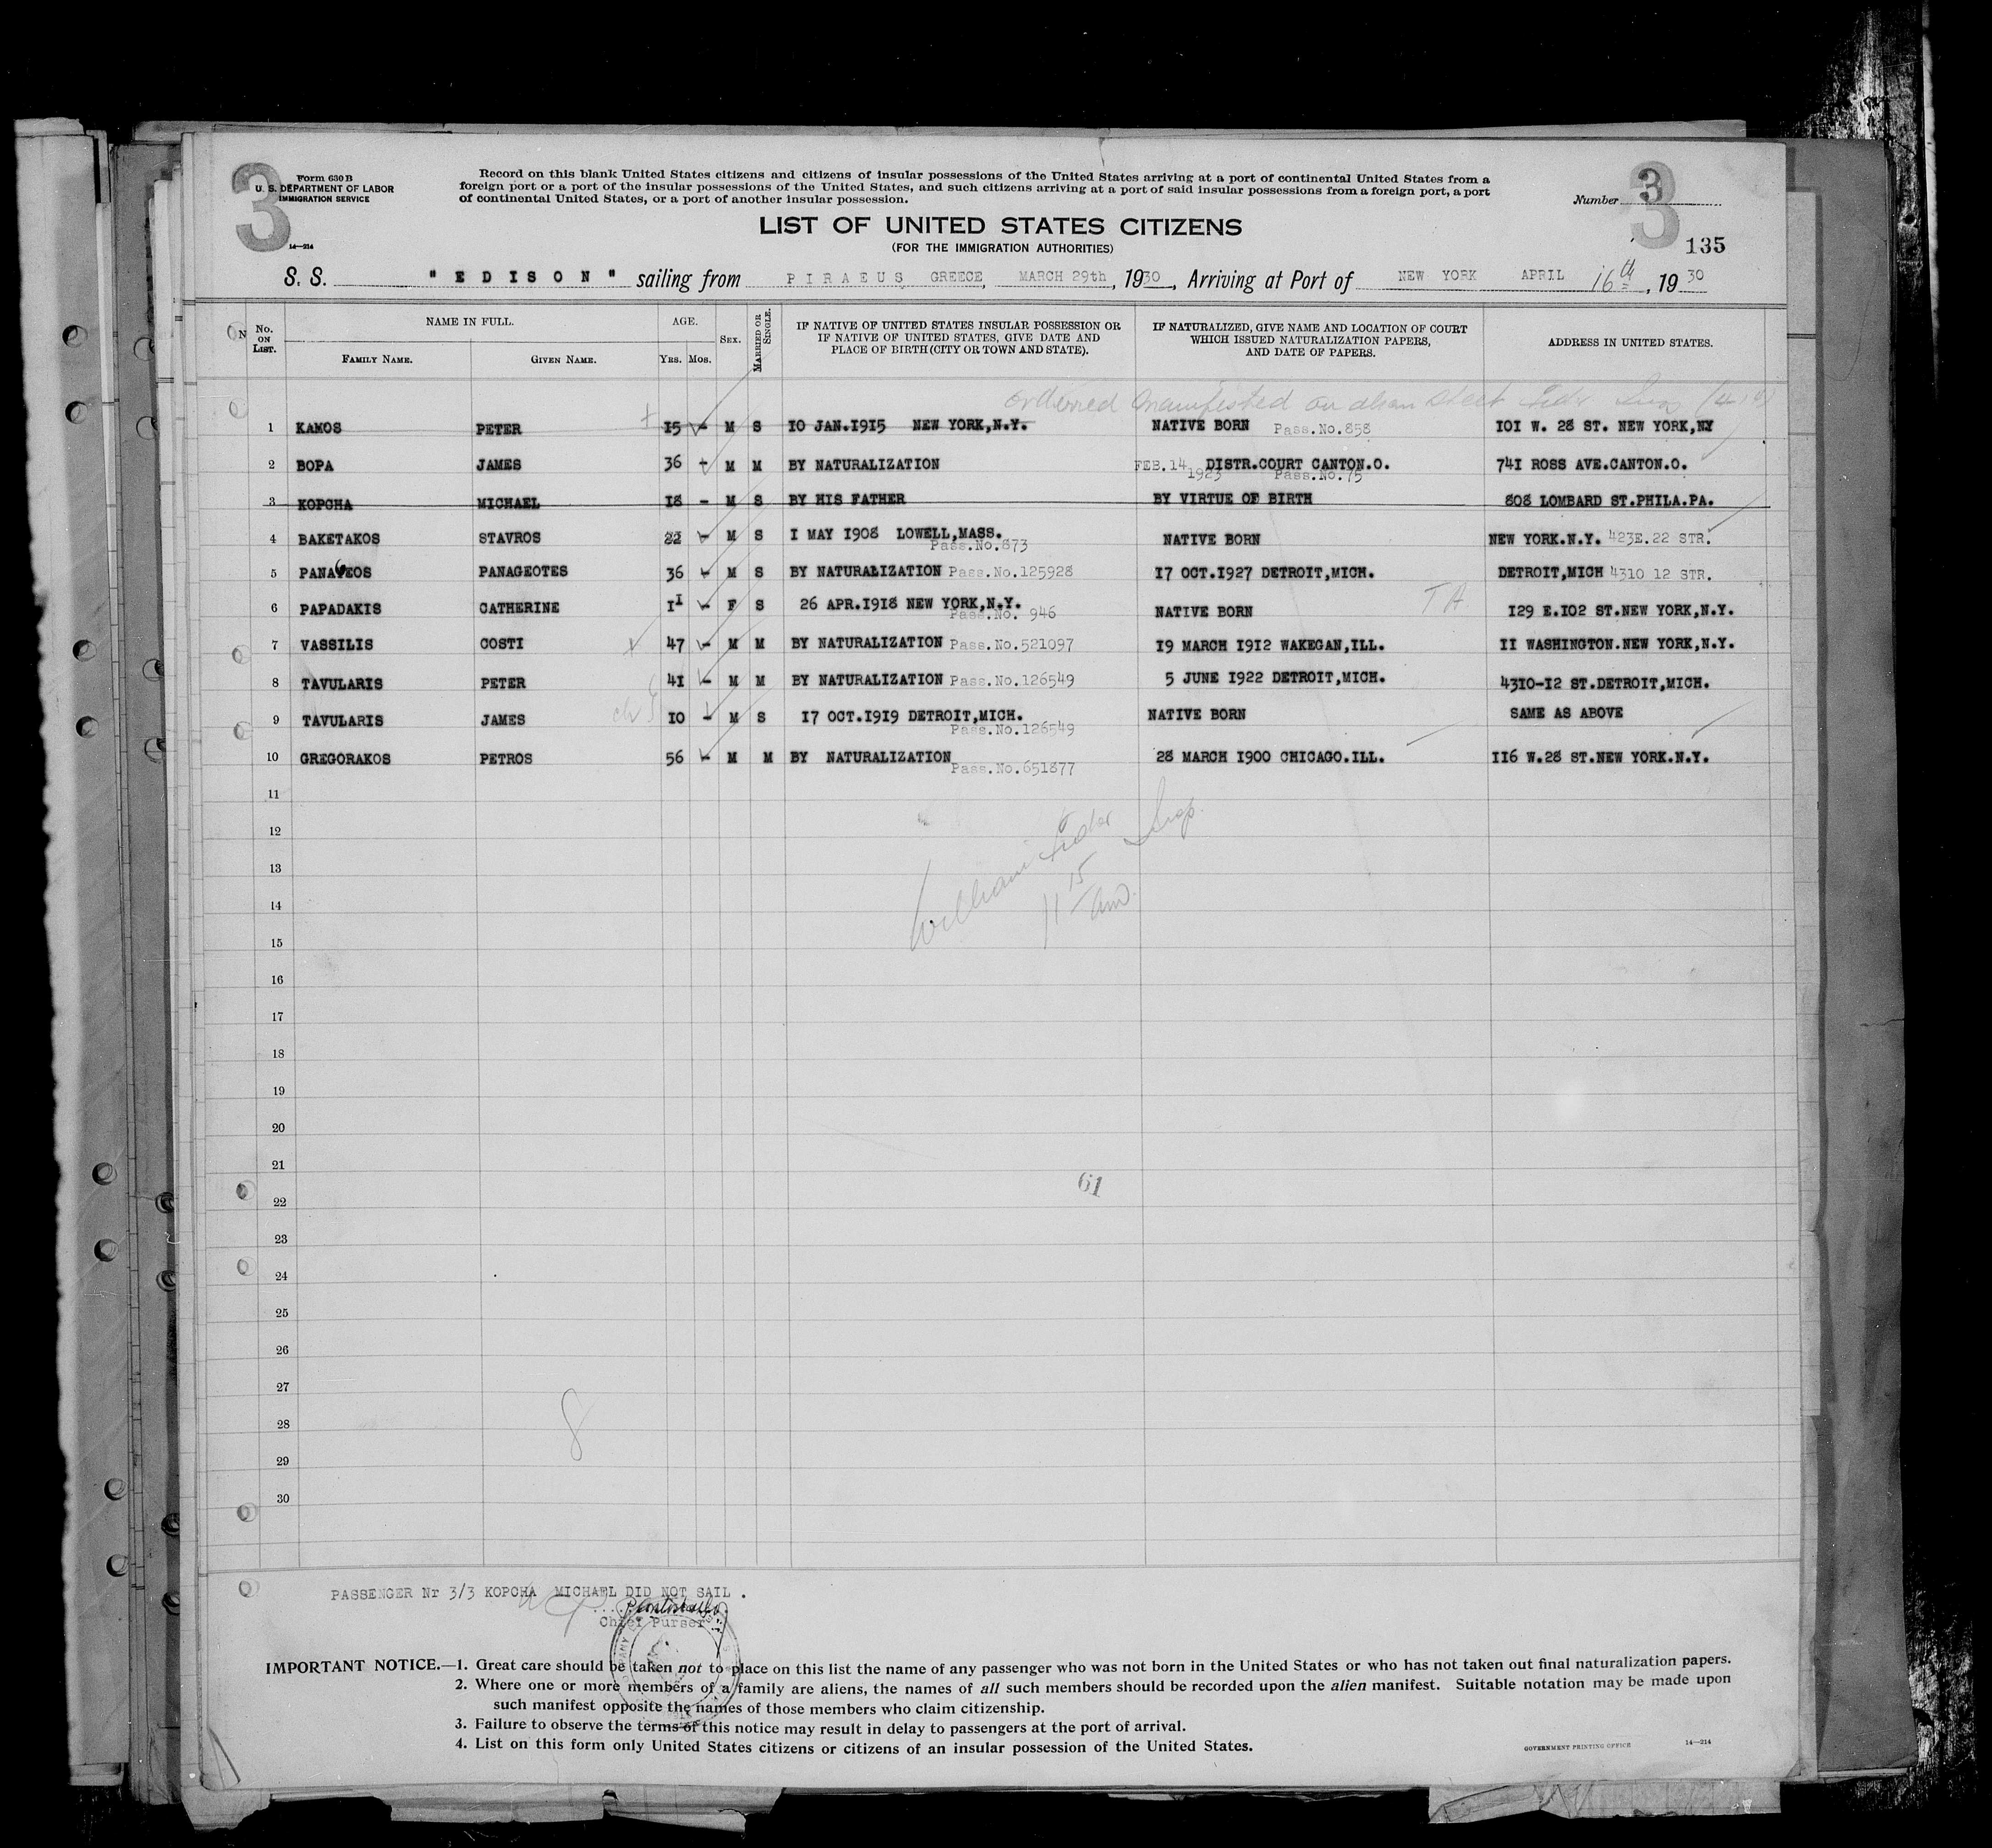 3
Form 630 B
U. S. DEPARTMENT OF LABOR
IMMIGRATION SERVICE
14—214
Record on this blank United States citizens and citizens of insular possessions of the United States arriving at a port of continental United States from a
foreign port or a port of the insular possessions of the United States, and such citizens arriving at a port of said insular possessions from a foreign port, a port
of continental United States, or a port of another insular possession.
Number 3
3
135
LIST OF UNITED STATES CITIZENS
(FOR THE IMMIGRATION AUTHORITIES)
S. S. " E D I S O N " sailing from P I R A E U S GREECE, MARCH 29th, 1930, Arriving at Port of NEW YORK APRIL 16th, 1930
No. ON LIST. NAME IN FULL. FAMILY NAME. GIVEN NAME. AGE. YRS. MOS. SEX. MARRIED OR SINGLE. IF NATIVE OF UNITED STATES INSULAR POSSESSION OR IF NATIVE OF UNITED STATES, GIVE DATE AND PLACE OF BIRTH (CITY OR TOWN AND STATE). IF NATURALIZED, GIVE NAME AND LOCATION OF COURT WHICH ISSUED NATURALIZATION PAPERS, AND DATE OF PAPERS. ADDRESS IN UNITED STATES.
ordered manifested on alien sheet
1 KAMOS PETER 15 - M S 10 JAN.1915 NEW YORK,N.Y. NATIVE BORN Pass.No.858 101 W. 28 ST. NEW YORK,NY
2 BOPA JAMES 36 - M M BY NATURALIZATION FEB.14 1923 DISTR.COURT CANTON.O. Pass.No.75 741 ROSS AVE.CANTON.O.
3 KOPCHA MICHAEL 18 - M S BY HIS FATHER BY VIRTUE OF BIRTH 808 LOMBARD ST.PHILA.PA.
4 BAKETAKOS STAVROS 22 - M S 1 MAY 1908 LOWELL,MASS. Pass.No.873 NATIVE BORN NEW YORK.N.Y. 423E.22 STR.
5 PANAGEOS PANAGEOTES 36 - M S BY NATURALIZATION Pass.No.125928 17 OCT.1927 DETROIT,MICH. DETROIT,MICH 4310 12 STR.
6 PAPADAKIS CATHERINE 11 - F S 26 APR.1918 NEW YORK,N.Y. Pass.No. 946 NATIVE BORN 129 E.102 ST.NEW YORK,N.Y.
7 VASSILIS COSTI 47 - M M BY NATURALIZATION Pass.No.521097 19 MARCH 1912 WAKEGAN,ILL. 11 WASHINGTON.NEW YORK,N.Y.
8 TAVULARIS PETER 41 - M M BY NATURALIZATION Pass.No.126549 5 JUNE 1922 DETROIT,MICH. 4310-12 ST.DETROIT,MICH.
9 TAVULARIS JAMES 10 - M S 17 OCT.1919 DETROIT,MICH. Pass.No.126549 NATIVE BORN SAME AS ABOVE
10 GREGORAKOS PETROS 56 - M M BY NATURALIZATION Pass.No.651877 28 MARCH 1900 CHICAGO.ILL. 116 W.28 ST.NEW YORK.N.Y.
11
12
13
14
15
16
17
18
19
20
21
22
23
24
25
26
27
28
29
30
William Insp.
11 15 am
61
8
PASSENGER Nr 3/3 KOPCHA MICHAEL DID NOT SAIL .
Chief Purser
IMPORTANT NOTICE.—1. Great care should be taken not to place on this list the name of any passenger who was not born in the United States or who has not taken out final naturalization papers.
2. Where one or more members of a family are aliens, the names of all such members should be recorded upon the alien manifest. Suitable notation may be made upon
such manifest opposite the names of those members who claim citizenship.
3. Failure to observe the terms of this notice may result in delay to passengers at the port of arrival.
4. List on this form only United States citizens or citizens of an insular possession of the United States.
GOVERNMENT PRINTING OFFICE 14—214